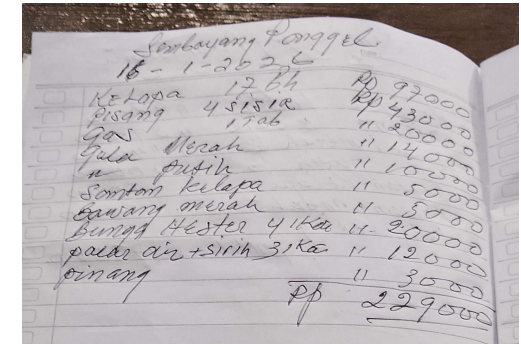 Sembayang Ponggel
16-1-2026
Kelapa 17 bh Rp 97000
Pisang 4 sisir Rp 43000
Gas 1 Tab " 20000
Gula Merah " 14000
" putih " 10000
Santan kelapa " 5000
Bawang merah " 5000
Bunga Hester 4 " 20000
pacar air + Sirih 3 " 12000
pinang " 3000
Rp 229000